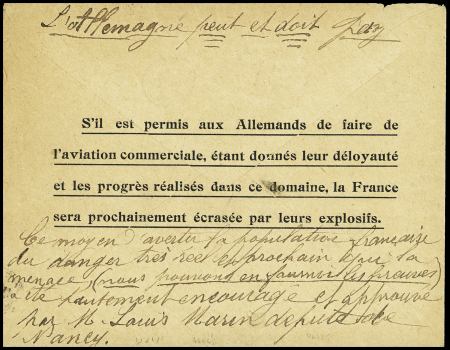 L'Allemagne peut et doit
S'il est permis aux Allemands de faire de
l'aviation commerciale, étant donnés leur déloyauté
et les progrès réalisés dans ce domaine, la France
sera prochainement écrasée par leurs explosifs.
Ce moyen d'avertir la population française
du danger très réel et prochain qui la
menace (nous pouvons en fournir les preuves)
a été hautement encouragé et approuvé
par M. Louis Marin député de
Nancy.